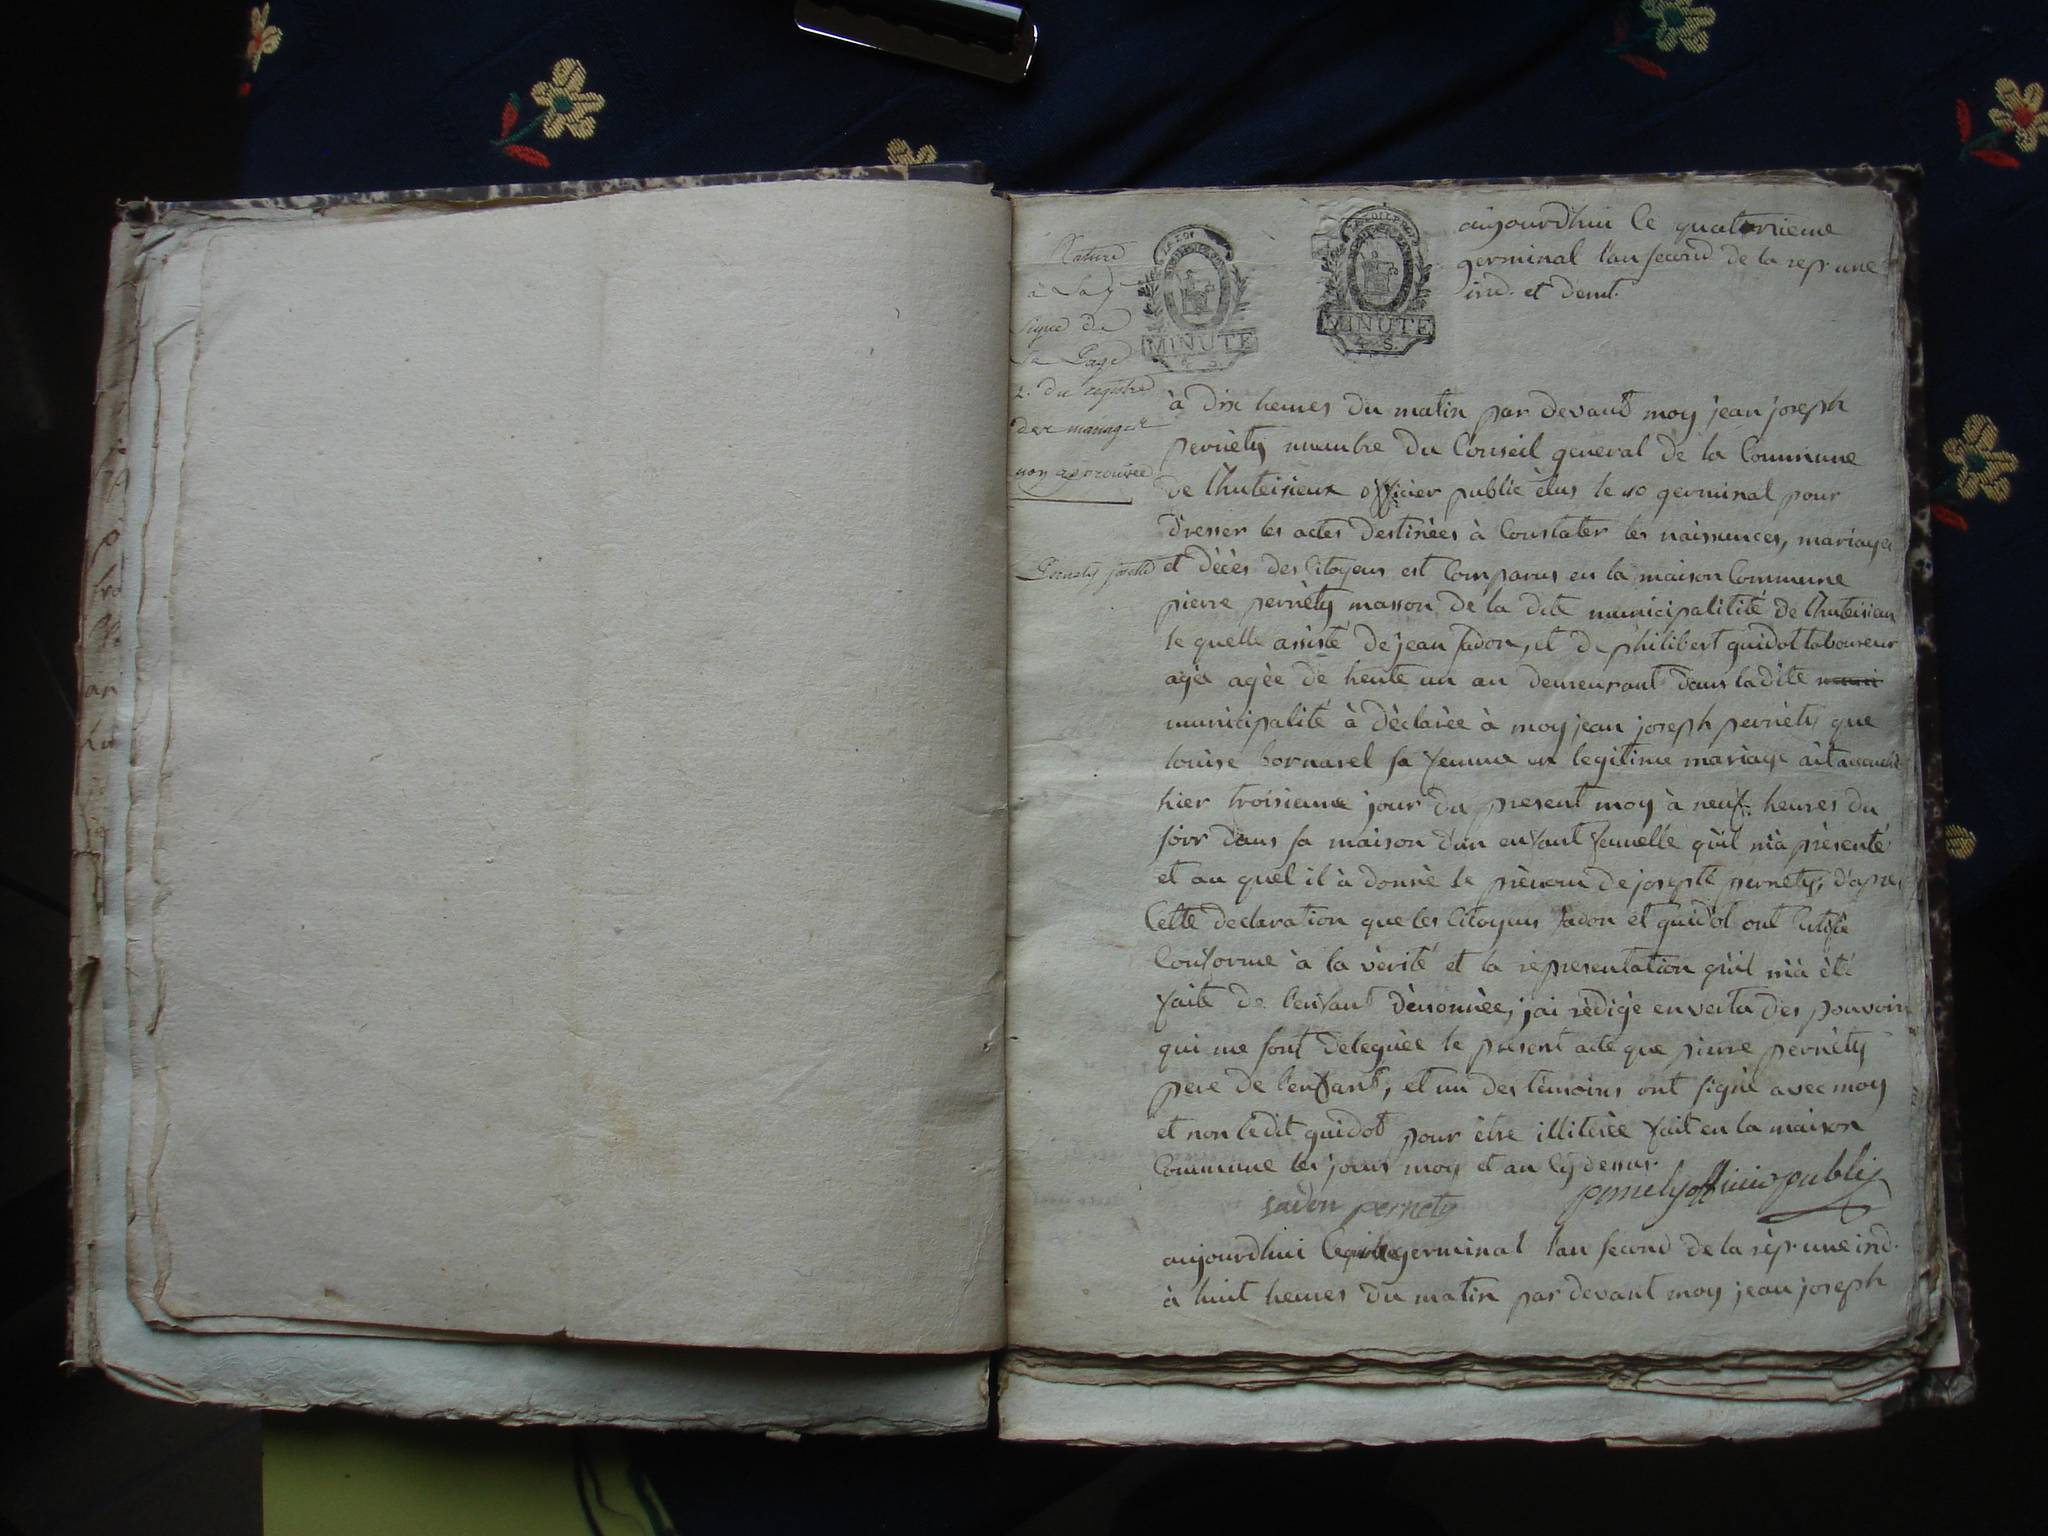 aujourdhui le quatorzieme
germinal l'an second de la rep. une
ind. et demt.
MINUTE
4. S.
MINUTE
4. S.
Nature
à La
signe de
la Page
2. du registre
des mariages
non approuvée
à dix heures du matin par devant moy jean joseph
pernèty membre du Conseil general de la Commune
de officier public élus le 10 germinal pour
dresser les actes destinées à Constater les naissances, mariages
Pernety josette
et décès des Citoyens est Comparus en la maison Commune
pierre pernèty masson de la dite municipalitité de
le quelle assisté de jean fadon, et de philibert guidot laboureur
agée de trente un an demeurant dans ladite
municipalité à dèclarèe à moy jean joseph pernèty que
louise bornarel sa femme en legitime mariage ait accouchée
hier troisieme jour du present moy à neuf heures du
soir dans sa maison d'un enfant femelle qu'il m'à prèsenté
et au quel il à donnè le prènom de josepté pernety, d'apres
Cette declaration que les Citoyens fadon et guidot ont
Conforme à la vèrité et la rèpresentation qu'il m'à èté
faite de l'enfant dènonnèe, j'ai rèdigè en vertu des pouvoirs
qui me sont deleguèe le present acte que pierre pernèty
pere de l'enfant, et un des tèmoins ont signè avec moy
et non ledit guidot pour ètre illiterèe fait en la maison
Commune les jours moy et an cy dessus.
fadon pernety pernety officier public
aujourdhui le germinal l'an second de la rèp. une ind.
à huit heures du matin par devant moy jean joseph